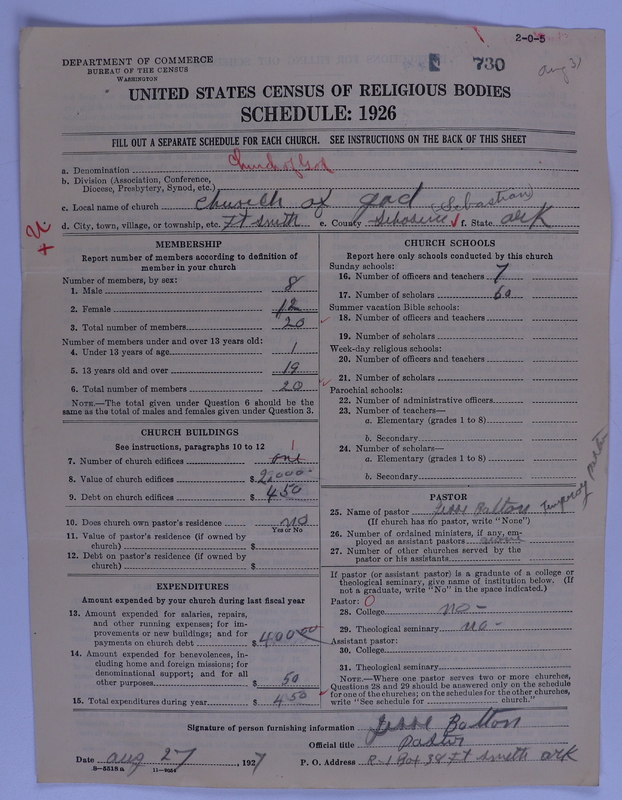 2-0-5
DEPARTMENT OF COMMERCE
BUREAU OF THE CENSUS
WASHINGTON
730
Aug 31
UNITED STATES CENSUS OF RELIGIOUS BODIES
SCHEDULE: 1926
FILL OUT A SEPARATE SCHEDULE FOR EACH CHURCH. SEE INSTRUCTIONS ON THE BACK OF THIS SHEET
a. Denomination Church of God
b. Division (Association, Conference,
Diocese, Presbytery, Synod, etc.)
c. Local name of church church of god (Sebastian)
d. City, town, village, or township, etc. Ft Smith e. County f. State ark
MEMBERSHIP
Report number of members according to definition of
member in your church
Number of members, by sex:
1. Male 8
2. Female 12
3. Total number of members 20
Number of members under and over 13 years old:
4. Under 13 years of age 1
5. 13 years old and over 19
6. Total number of members 20
NOTE.—The total given under Question 6 should be the
same as the total of males and females given under Question 3.
CHURCH BUILDINGS
See instructions, paragraphs 10 to 12
1
7. Number of church edifices one
8. Value of church edifices $ 2,000
9. Debt on church edifices $ 450
10. Does church own pastor's residence? no
Yes or No
11. Value of pastor's residence (if owned by
church) $
12. Debt on pastor's residence (if owned by
church) $
EXPENDITURES
Amount expended by your church during last fiscal year
13. Amount expended for salaries, repairs,
and other running expenses; for im-
provements or new buildings; and for
payments on church debt $ 400 00
14. Amount expended for benevolences, in-
cluding home and foreign missions; for
denominational support; and for all
other purposes $ 50
15. Total expenditures during year $ 450
CHURCH SCHOOLS
Report here only schools conducted by this church
Sunday schools:
16. Number of officers and teachers 7
17. Number of scholars 60
Summer vacation Bible schools:
18. Number of officers and teachers
19. Number of scholars
Week-day religious schools:
20. Number of officers and teachers
21. Number of scholars
Parochial schools:
22. Number of administrative officers
23. Number of teachers—
a. Elementary (grades 1 to 8)
b. Secondary
24. Number of scholars—
a. Elementary (grades 1 to 8)
b. Secondary
PASTOR
25. Name of pastor Jesse Bolton
(If church has no pastor, write "None")
26. Number of ordained ministers, if any, em-
ployed as assistant pastors
27. Number of other churches served by the
pastor or his assistants
If pastor (or assistant pastor) is a graduate of a college or
theological seminary, give name of institution below. (If
not a graduate, write "No" in the space indicated.)
Pastor: 0
28. College no -
29. Theological seminary no -
Assistant pastor:
30. College
31. Theological seminary
NOTE.—Where one pastor serves two or more churches,
Questions 28 and 29 should be answered only on the schedule
for one of the churches; on the schedules for the other churches,
write "See schedule for church."
Signature of person furnishing information Jesse Bolton
Official title Pastor
Date aug 27, 1927 P. O. Address R-1 Box 38 Ft Smith ark
8-5518a 11-9064